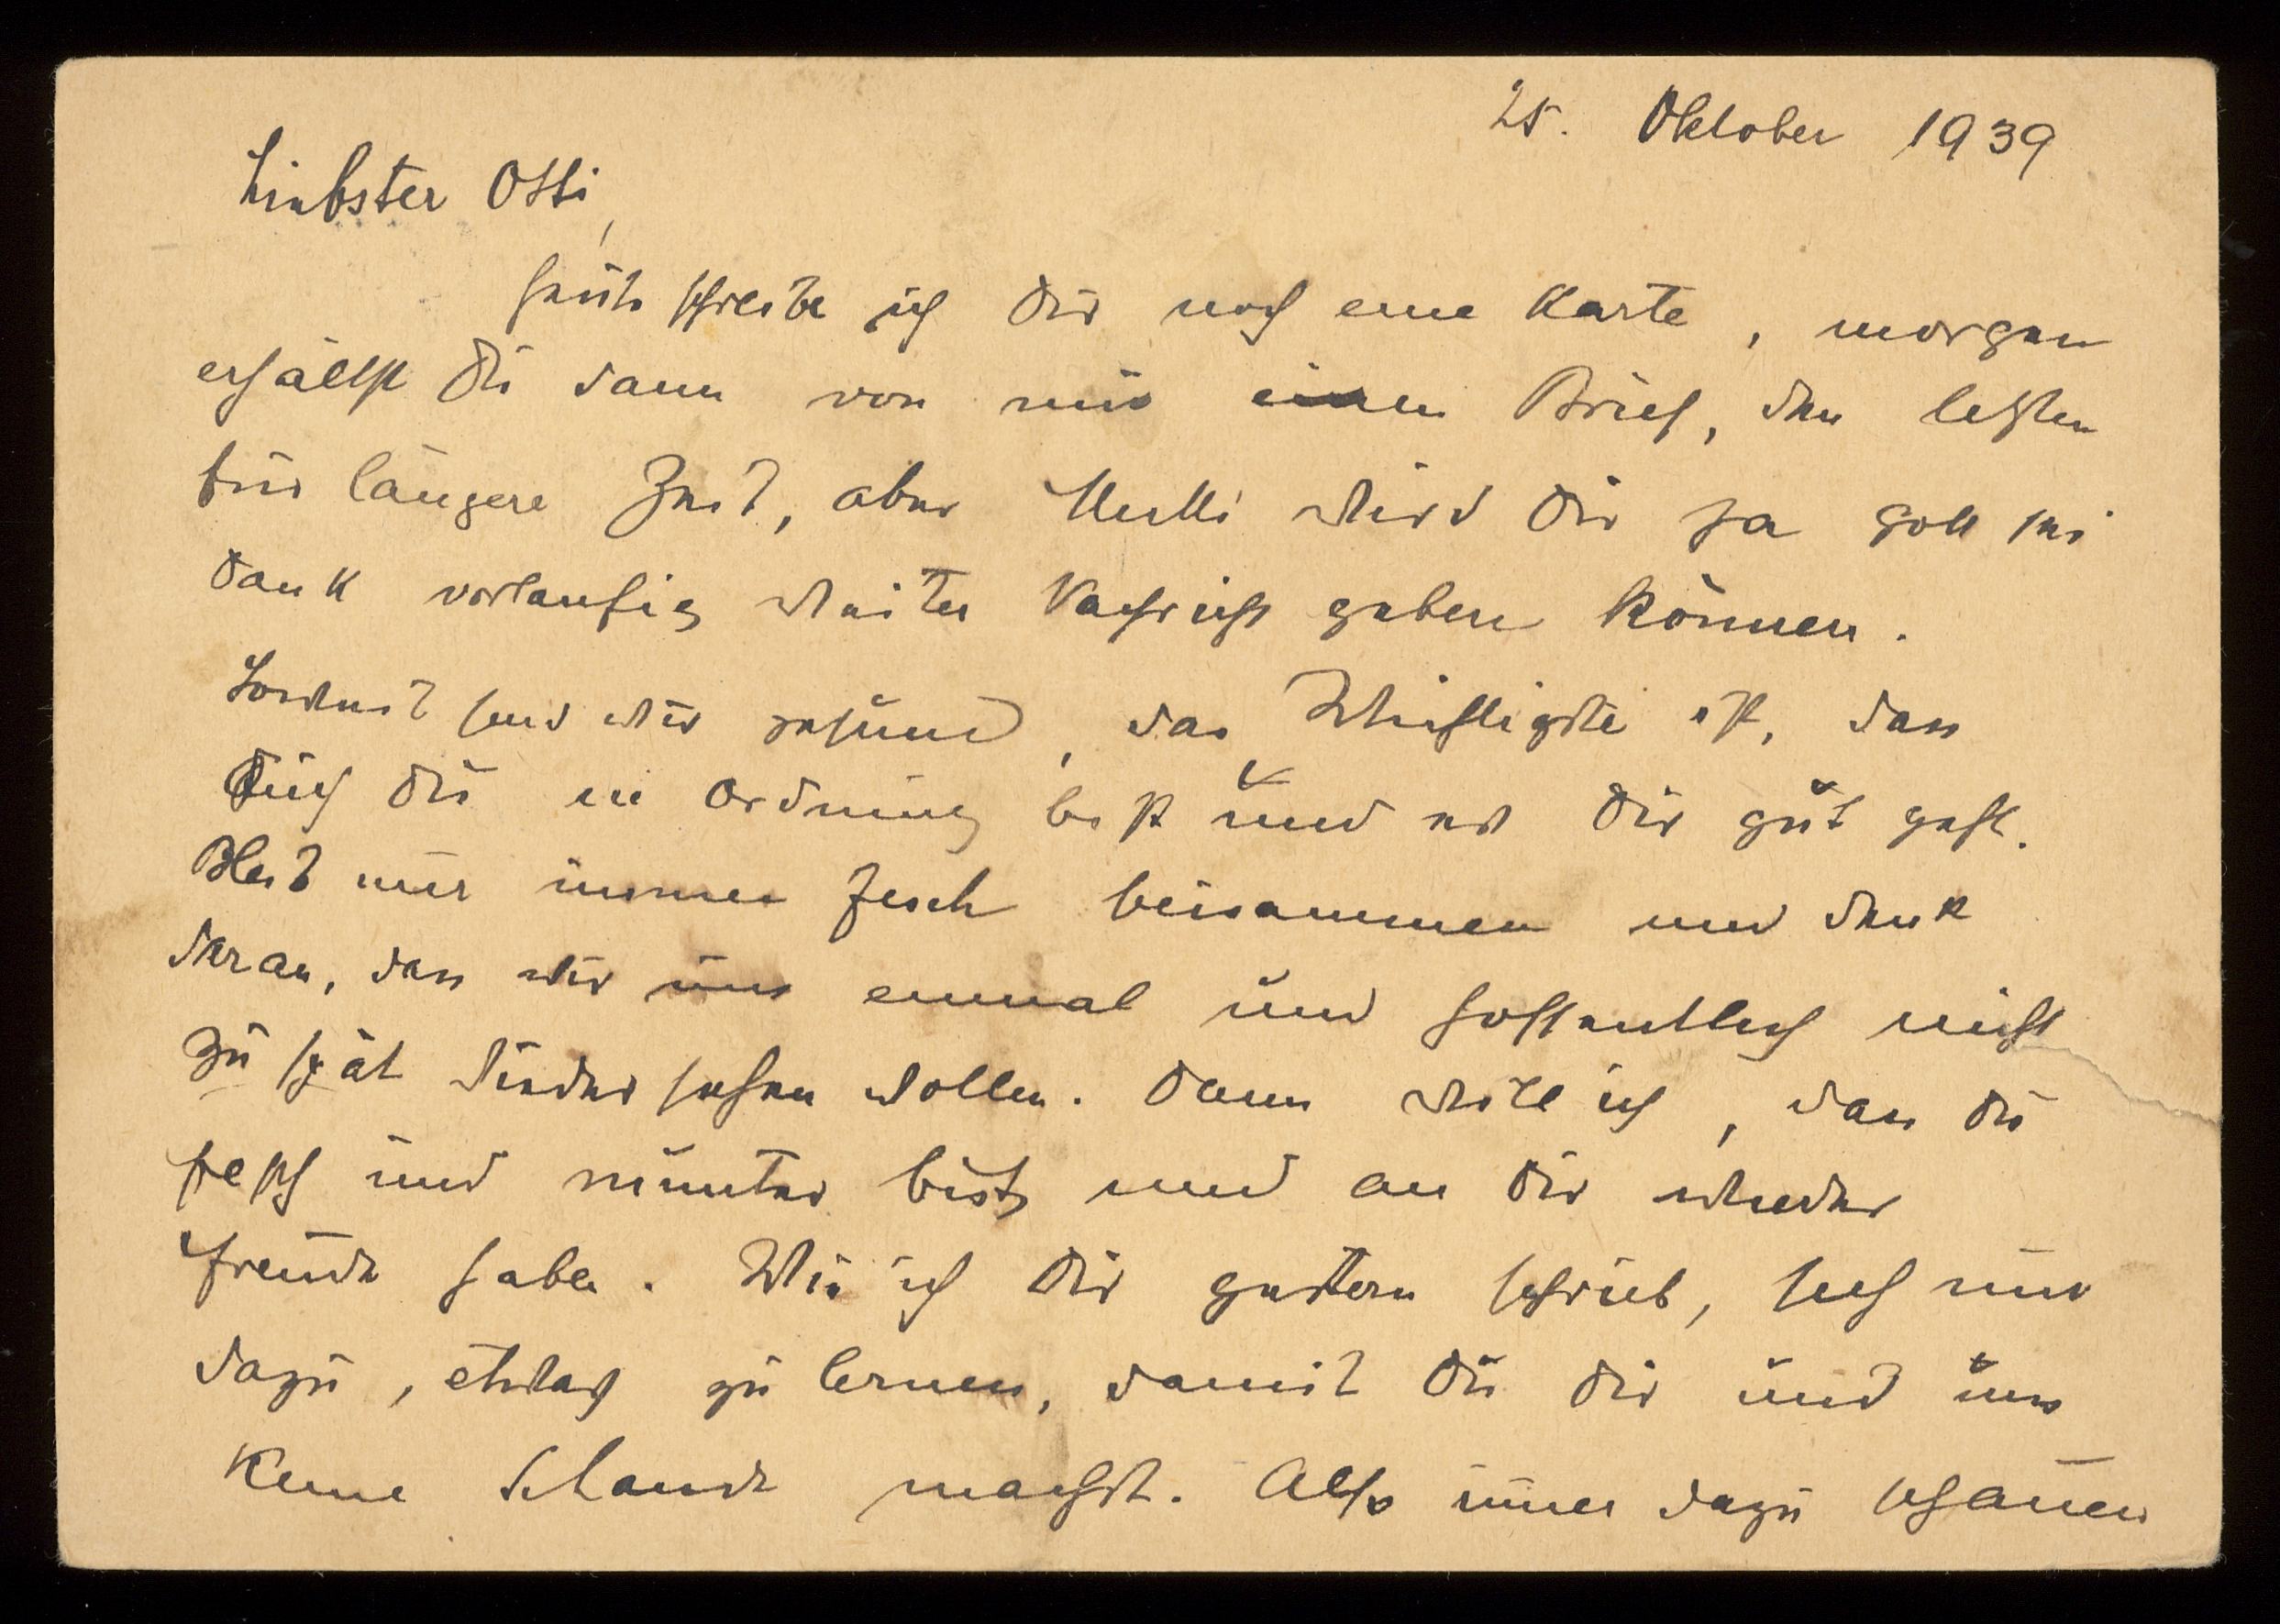 25. Oktober 1939
Liebster Otti,
heute schreibe ich Dir noch eine Karte, morgen
erhältst Du dann von mir einen Brief, den letzten
für längere Zeit, aber Mutti wird Dir ja gott sei
dank vorlaufig weiter Nachricht geben können.
Soweit sind wir gesund, das Wichtigste ist, dass
Du in Ordnung bist und es Dir gut geht.
Bleib nur immer fesch beisammen und denk
daran, dass wir uns einmal und hoffentlich nicht
zu spät wieder sehen wollen. Dann will ich, dass Du
fesch und munter bist und an Dir wieder
Freude haben. Wie ich Dir gestern schrieb, sieh nur
dazu, etwas zu lernen, damit Du Dir und uns
keine Schande machst. Also immer dazu schauen